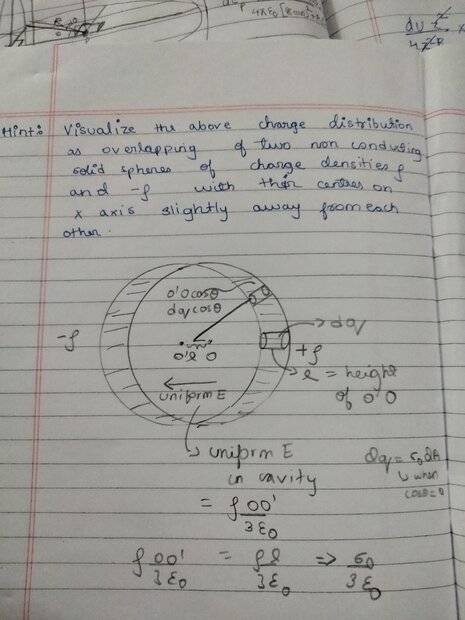 4πε₀
Hint: Visualize the above charge distribution
as overlapping of two non conducting
solid spheres of charge densities ρ
and -ρ with their centres on
x axis slightly away from each
other.
O'Ocosθ
dqcosθ
-ρ
dq
O' l O
+ρ
uniform E
l = height
of O'O
uniform E
in cavity
= ρ OO'/3ε₀
dq = σ₀dA
when
cosθ=0
ρ OO'/3ε₀ = ρl/3ε₀ => σ₀/3ε₀